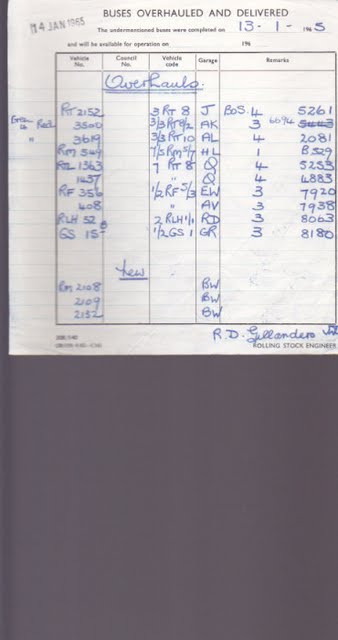 14 JAN 1965
BUSES OVERHAULED AND DELIVERED
The undermentioned buses were completed on 13 - 1 - 1965
and will be available for operation on 196
Vehicle No. Council No. Vehicle code Garage Remarks
Overhauls.
RT 2152 3 RT 8 J BOS. 4 5261
Green to Red 3500 3/3 RT 8/2 AK 3 6094 5443
" 3619 3/3 RT 10 AL 4 2081
RM 549 7/5 RM 5/7 HL 1 B529
RTL 1363 7 RT 8 Q 4 5253
1437 " Q 4 4883
RF 356 1/2 RF 5/3 EW 3 7920
408 " AV 3 7938
RLH 52 2 RLH 1/1 RD 3 8063
GS 15 1/2 GS 1 GR 3 8180
New
RM 2108 BW
2109 BW
2132 BW
R.D. Gellanders
ROLLING STOCK ENGINEER